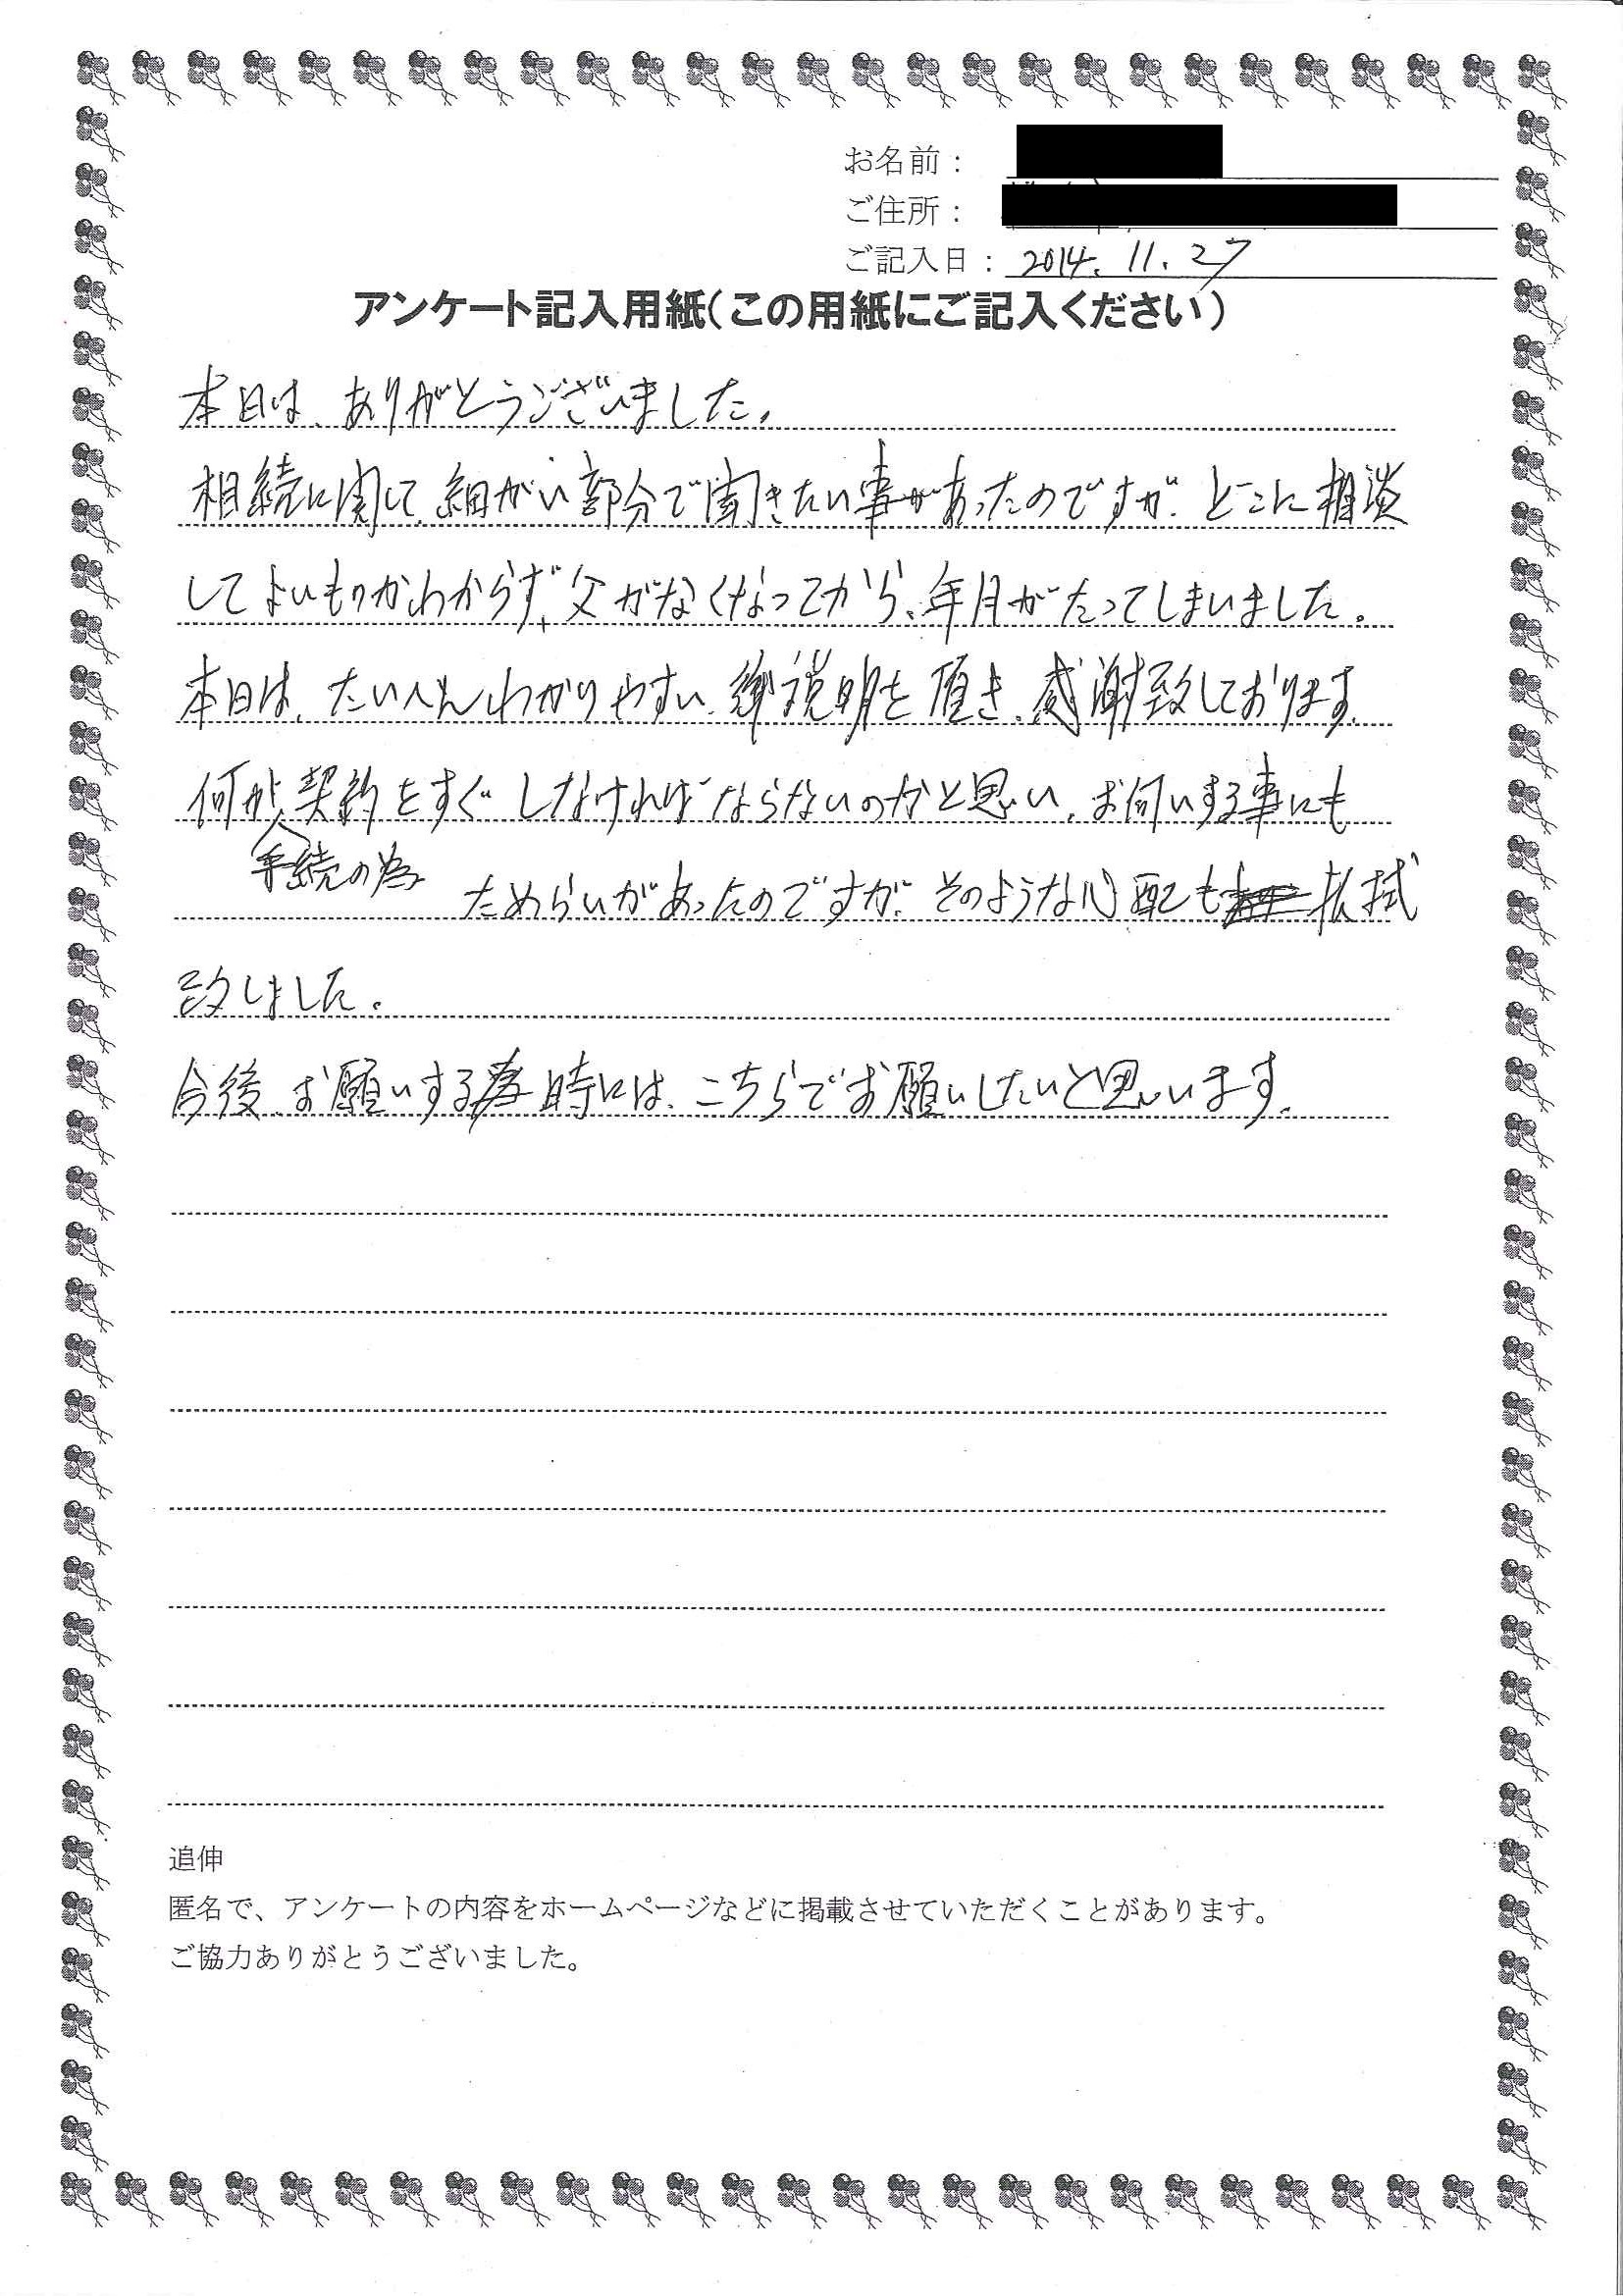 お名前：
ご住所：
ご記入日：2014.11.27
アンケート記入用紙（この用紙にご記入ください）
本日は、ありがとうございました。
相続に関して、細がい部分で聞きたい事があったのですが、どこに相談
してよいものかわからず、父がなくなってから、年月がたってしまいました。
本日は、たいへんわかりやすい、御説明を頂き、感謝致しております。
何か、契約をすぐしなければならないのかと思い、お伺いする事にも
手続の為
ためらいがあったのですが、そのような心配も払拭
致しました。
今後、お願いする時には、こちらでお願いしたいと思います。
追伸
匿名で、アンケートの内容をホームページなどに掲載させていただくことがあります。
ご協力ありがとうございました。